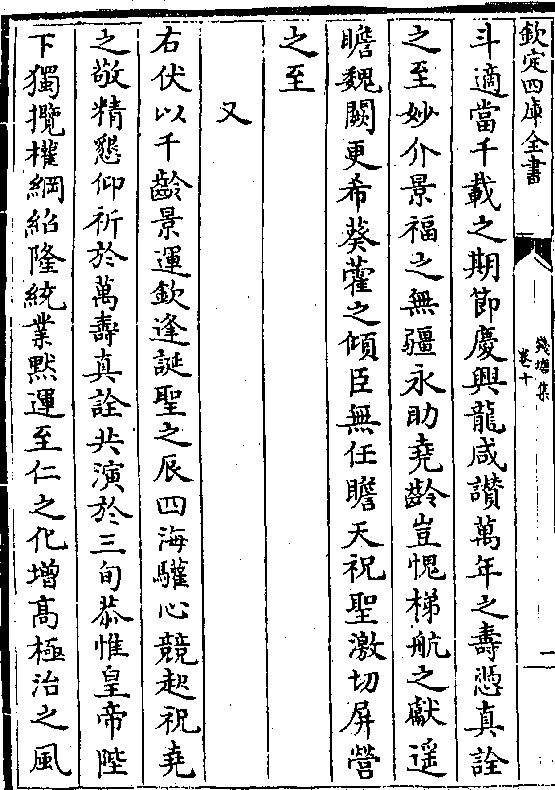 欽定四庫全書
錢塘集
卷十
一
斗適當千載之期節慶興龍咸讃萬年之壽憑真詮
之至妙介景福之無疆永助堯齡豈愧梯航之獻遥
瞻魏闕更希葵藿之傾臣無任瞻天祝聖激切屏營
之至
又
右伏以千齡景運欽逢誕聖之辰四海驩心競起祝堯
之敬精懇仰祈於萬壽真詮共演於三旬恭惟皇帝陛
下獨攬權綱紹隆統業黙運至仁之化增髙極治之風